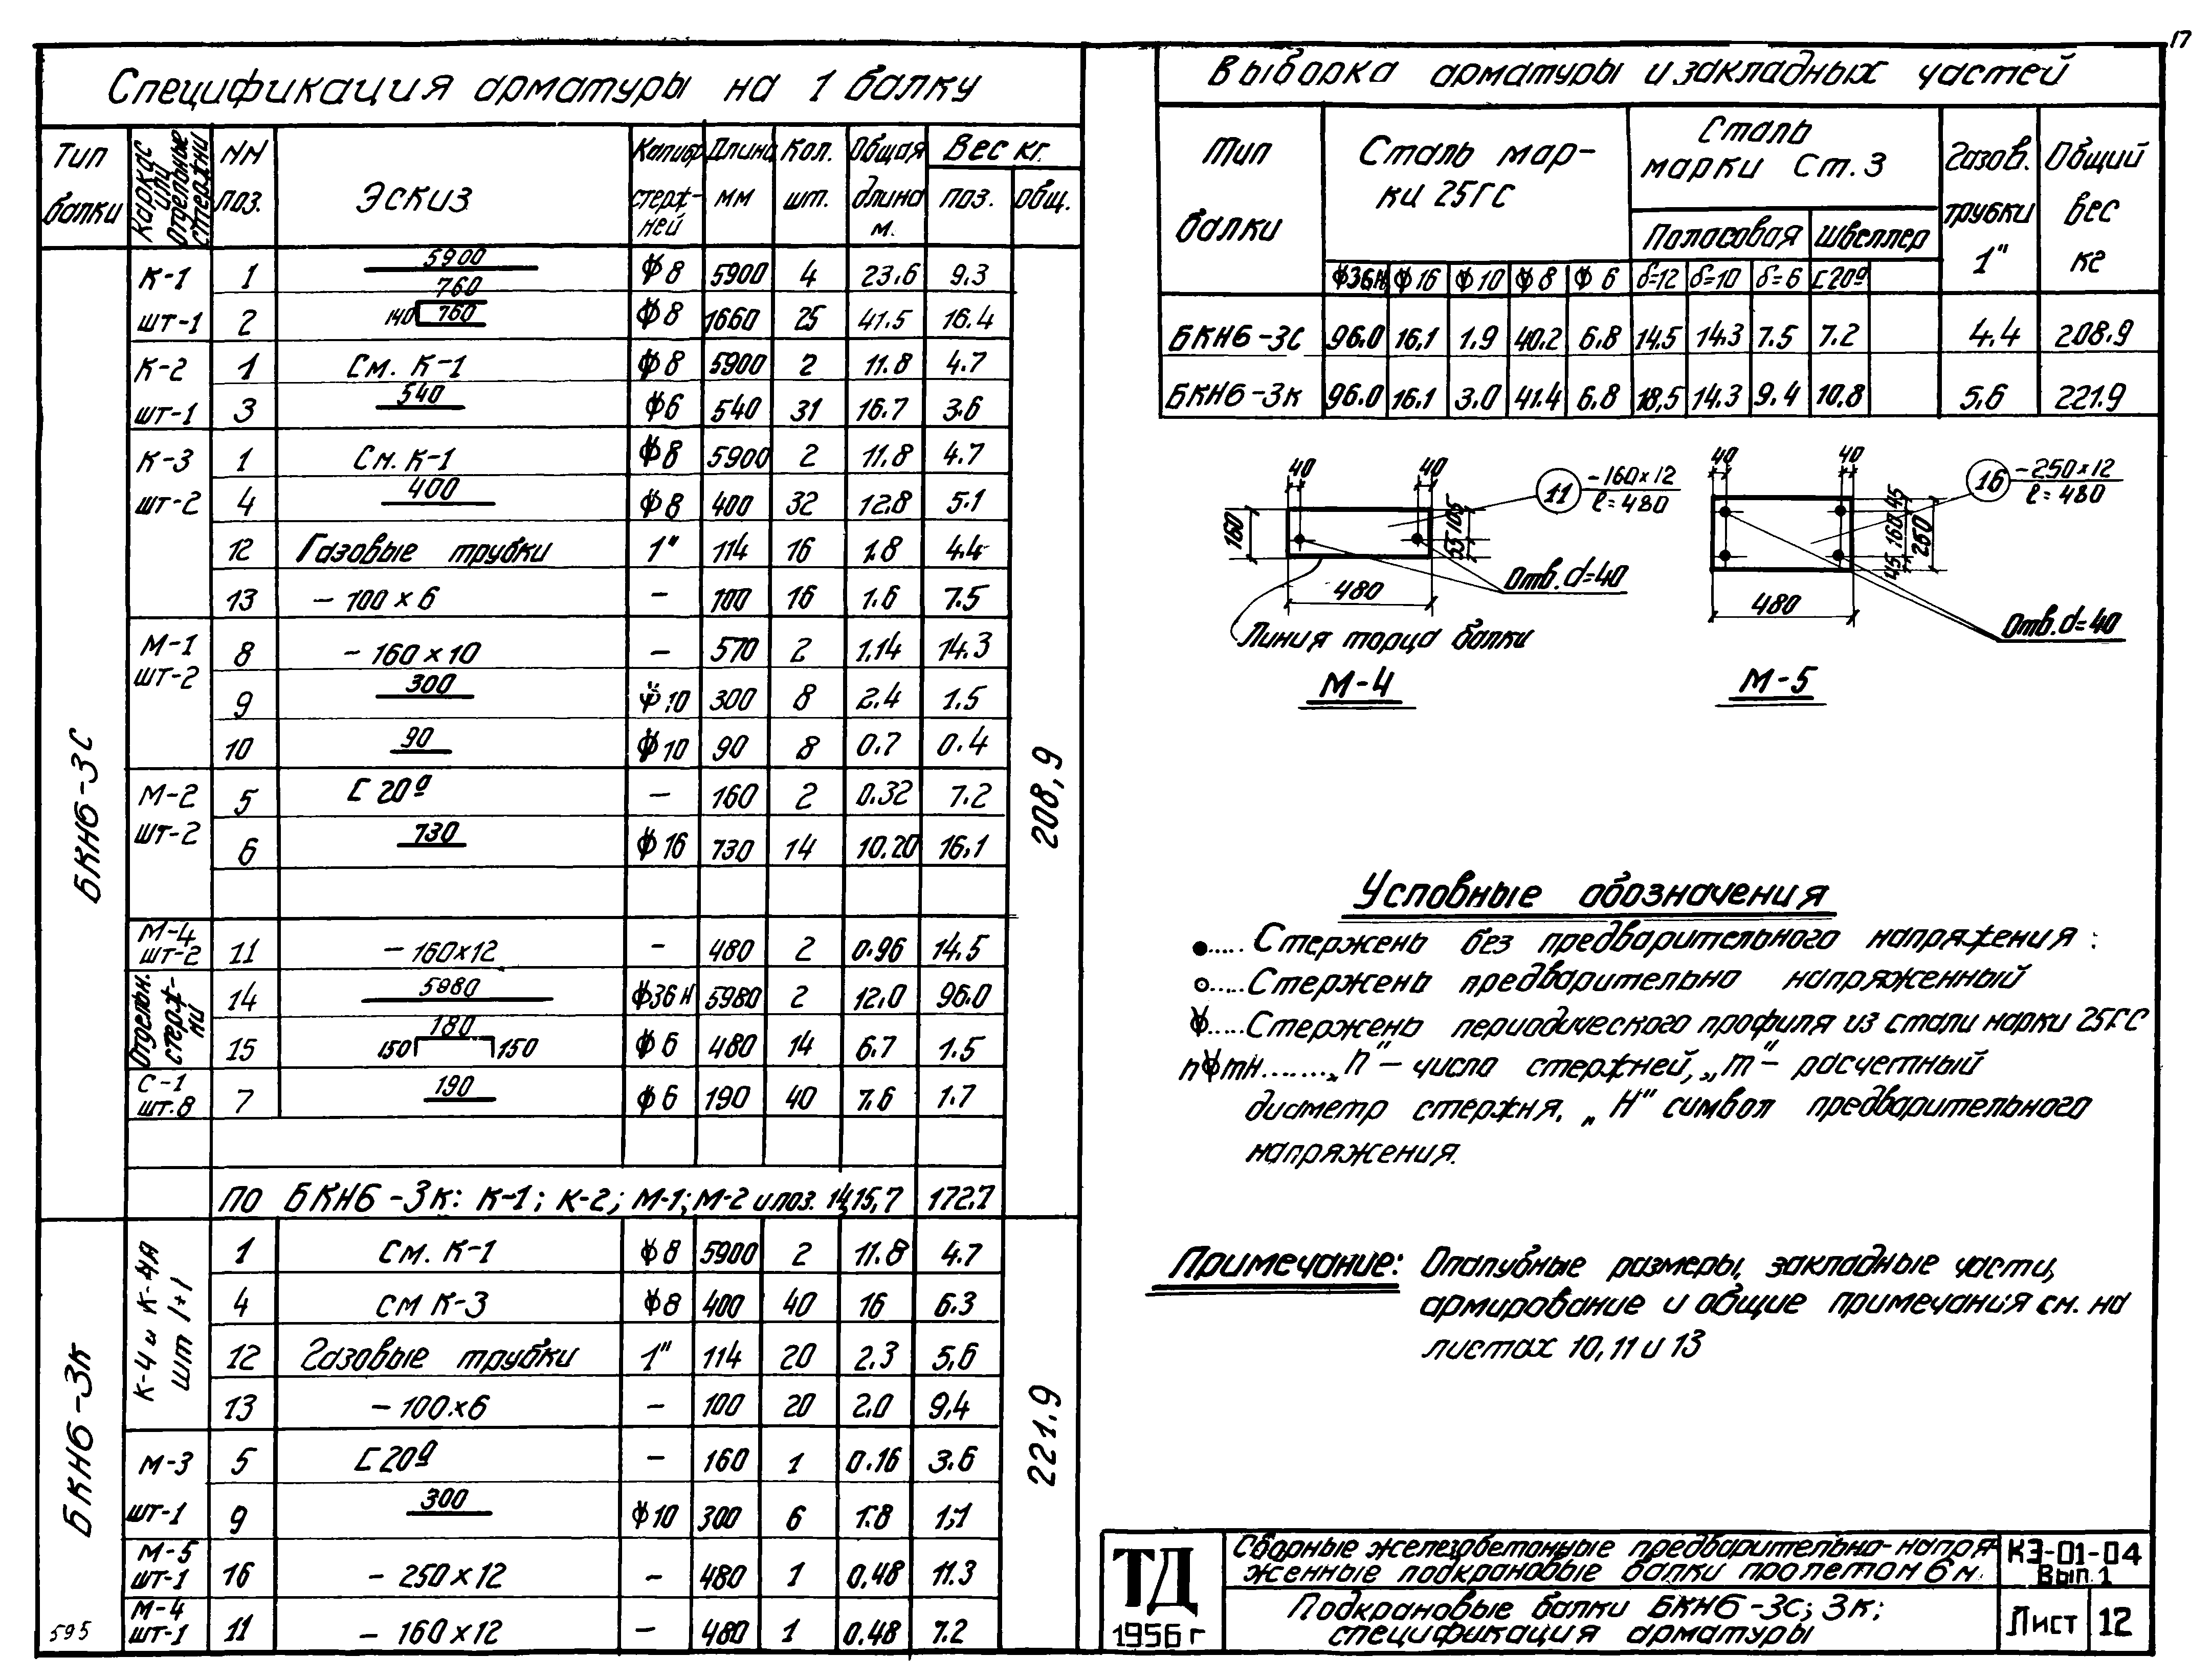 17
Спецификация арматуры на 1 балку
Тип балки | Каркас или отдельные стержни | NN поз. | Эскиз | Калибр стержней | Длина мм | Кол. шт. | Общая длина м. | Вес кг. поз. | общ.
БКН6-3С
208,9
К-1 шт-1
1 | 5900 | ф8 | 5900 | 4 | 23.6 | 9.3
2 | 760 140 760 | ф8 | 1660 | 25 | 41.5 | 16.4
К-2 шт-1
1 | См. К-1 | ф8 | 5900 | 2 | 11.8 | 4.7
3 | 540 | ф6 | 540 | 31 | 16.7 | 3.6
К-3 шт-2
1 | См. К-1 | ф8 | 5900 | 2 | 11.8 | 4.7
4 | 400 | ф8 | 400 | 32 | 12.8 | 5.1
12 | Газовые трубки | 1" | 114 | 16 | 1.8 | 4.4
13 | - 100 × 6 | - | 100 | 16 | 1.6 | 7.5
М-1 шт-2
8 | - 160 × 10 | - | 570 | 2 | 1.14 | 14.3
9 | 300 | ф10 | 300 | 8 | 2.4 | 1.5
10 | 90 | ф10 | 90 | 8 | 0.7 | 0.4
М-2 шт-2
5 | [ 20а | - | 160 | 2 | 0.32 | 7.2
6 | 730 | ф16 | 730 | 14 | 10.20 | 16.1
М-4 шт-2
11 | - 160×12 | - | 480 | 2 | 0.96 | 14.5
Отдельн. стержни
14 | 5980 | ф36Н | 5980 | 2 | 12.0 | 96.0
15 | 150 180 150 | ф6 | 480 | 14 | 6.7 | 1.5
С-1 шт.8
7 | 190 | ф6 | 190 | 40 | 7.6 | 1.7
БКН6-3к
221.9
по БКН6-3к: К-1; К-2; М-1; М-2 и поз. 14,15,7 | 172.7
К-4 и К-4А шт 1+1
1 | См. К-1 | ф8 | 5900 | 2 | 11.8 | 4.7
4 | см К-3 | ф8 | 400 | 40 | 16 | 6.3
12 | Газовые трубки | 1" | 114 | 20 | 2.3 | 5,6
13 | - 100×6 | - | 100 | 20 | 2.0 | 9,4
М-3 шт-1
5 | [20а | - | 160 | 1 | 0.16 | 3.6
9 | 300 | ф10 | 300 | 6 | 1.8 | 1,1
М-5 шт-1
16 | - 250×12 | - | 480 | 1 | 0.48 | 11.3
М-4 шт-1
11 | - 160×12 | - | 480 | 1 | 0.48 | 7.2
595
Выборка арматуры и закладных частей
Тип балки | Сталь марки 25ГС | Сталь марки Ст.3 | Газов. трубки 1" | Общий вес кг
Полосовая | Швеллер
ф36Н | ф16 | ф10 | ф8 | ф6 | δ=12 | δ=10 | δ=6 | [20а
БКН6-3С | 96.0 | 16,1 | 1.9 | 40.2 | 6.8 | 14,5 | 14.3 | 7.5 | 7.2 | 4.4 | 208.9
БКН6-3к | 96.0 | 16.1 | 3.0 | 41.4 | 6.8 | 18,5 | 14.3 | 9.4 | 10,8 | 5,6 | 221.9
40 40
11 -160×12
ℓ=480
160
55 105
Отв. d=40
480
Линия торца балки
М-4
40 40
16 -250×12
ℓ=480
45 160 45
250
480
Отв. d=40
М-5
Условные обозначения
●..... Стержень без предварительного напряжения:
○..... Стержень предварительно напряженный
ф..... Стержень периодического профиля из стали марки 25ГС
nфmн........„n"- число стержней, „m"- расчетный
диаметр стержня, „Н" символ предварительного
напряжения.
Примечание: Опалубные размеры, закладные части,
армирование и общие примечания см. на
листах 10, 11 и 13
ТД
1956г
Сборные железобетонные предварительно-напря-
женные подкрановые балки пролетом 6 м.
КЭ-01-04
Вып.1
Подкрановые балки БКН6-3с; 3к;
спецификация арматуры
Лист 12